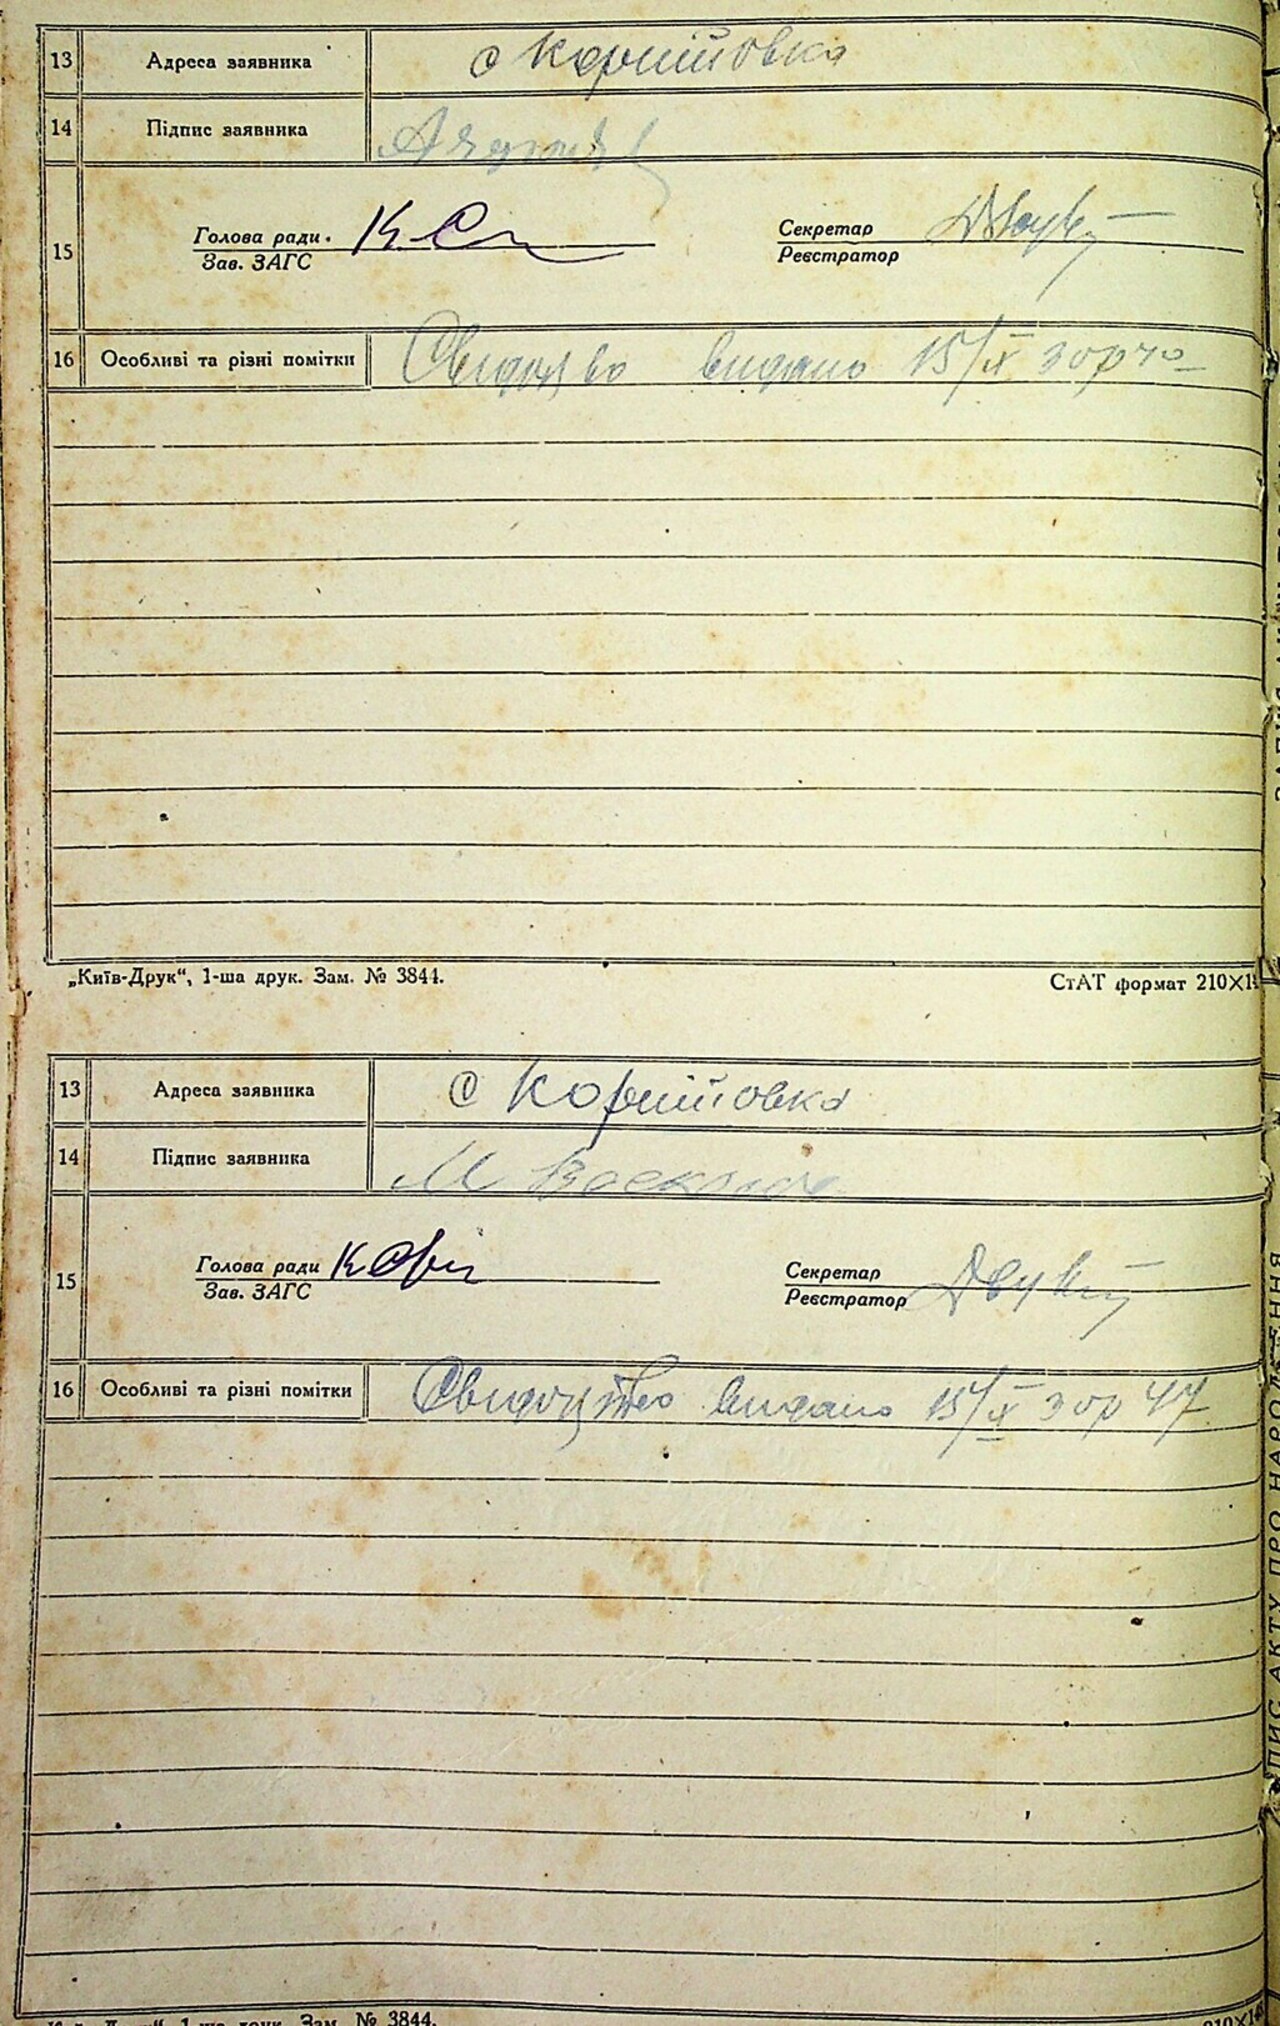 13 Адреса заявника с Корнійовка
14 Підпис заявника
15 Голова ради Секретар
Зав. ЗАГС Реєстратор
16 Особливі та різні помітки видано 15/IX 30р
„Київ-Друк“, 1-ша друк. Зам. № 3844. СтАТ формат 210×1
13 Адреса заявника с Корнійовка
14 Підпис заявника М
15 Голова ради Секретар
Зав. ЗАГС Реєстратор
16 Особливі та різні помітки Свидоцтво видано 15/IX 30р 47
1-ша друк. Зам. № 3844. 210×14
ПИС АКТУ ПРО НАРОДЖЕННЯ